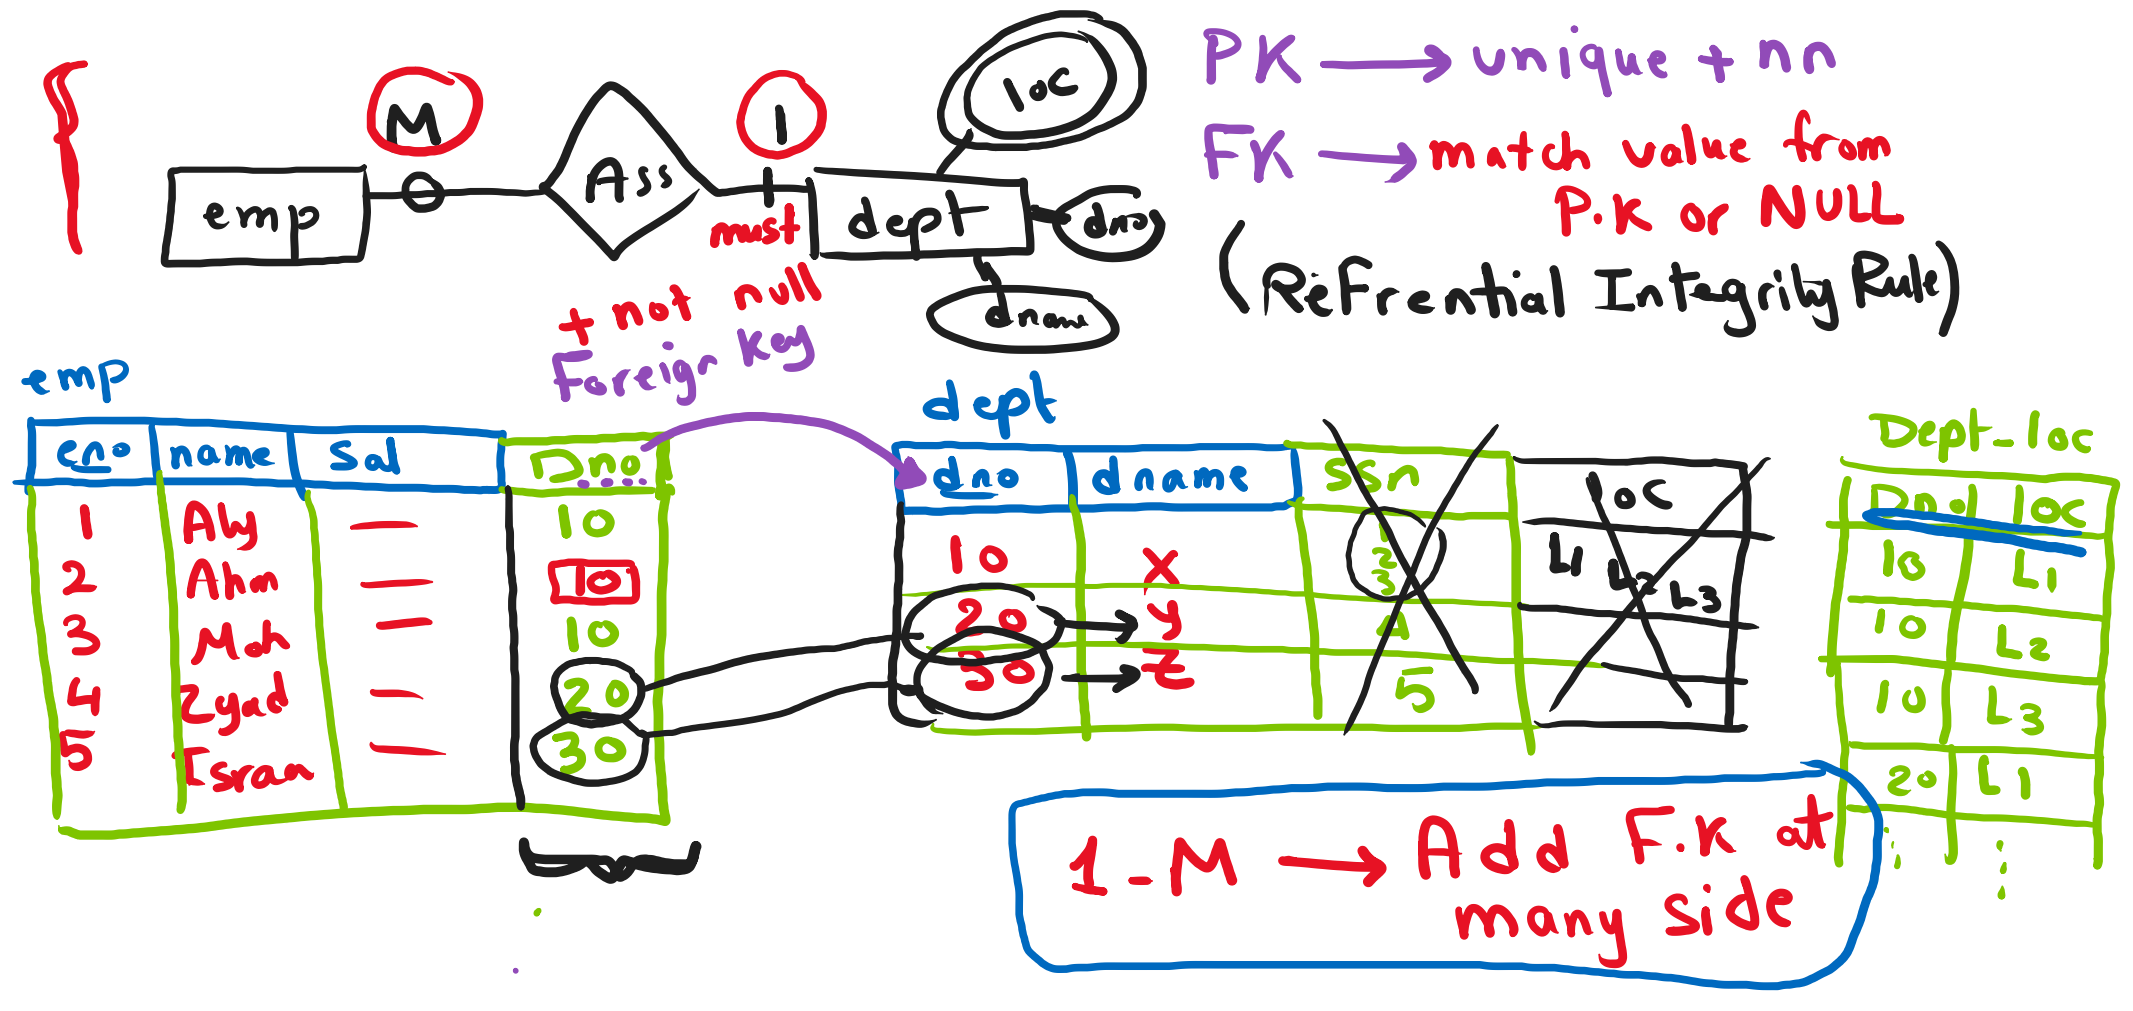 M
1
loc
emp
Ass
must
dept
dno
dname
PK → unique + nn
FK → match value from
P.K or NULL
(ReFrential Integrity Rule)
+ not null
Foreign key
emp
eno name Sal Dno
1 Aly 10
2 Ahm 10
3 Moh 10
4 Zyad 20
5 Israa 30
dept
dno dname ssn loc
10 X 1 2 3 L1 L2 L3
20 y 4
30 Z 5
Dept_loc
Dno loc
10 L1
10 L2
10 L3
20 L1
1_M → Add F.K at
many side